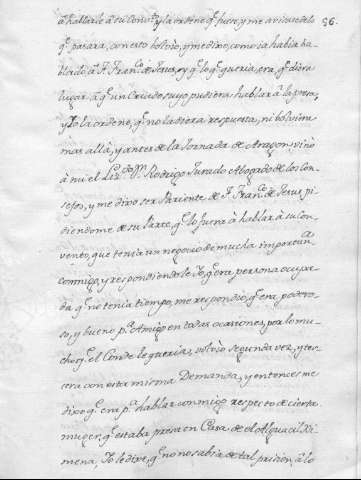 à hallarle à su Convto y la ordene q fuese, y me avisase de lo 96.
q pasara, con esto bolvio, y me dixo, como ia habia ha-
blado à F. Franco de Jesus, y q lo q queria, era, q diera
lugar à q un Criado suyo pudiera hablar à la presa,
y Yo la ordene, q no la diera respuesta, ni bolviera
mas allà, y antes de la Jornada de Aragon, vino
à mi el Lizdo Dn Rodrigo Jurado Abogado de los Con-
sejos, y me dixo ser Pariente de F. Franco de Jesus pi-
diendome de su Parte, q lo fuera à hablar à su con-
vento, que tenia un negocio de mucha importena
conmigo, y respondiendole Yo, q era persona ocupa-
da q no tenia tiempo, me respondio q era podero-
so, y bueno pa Amigo en todas ocasiones, por lo mu-
cho q el Conde le queria, volvio segunda vez, y ter-
cera con esta misma Demanda, y entonces me
dixo q era pa hablar conmigo respecto de cierta
muger, q estaba presa en Casa de el Alguacil Xi-
mena, Yo le dixe, q no sabia de tal prision, à lo